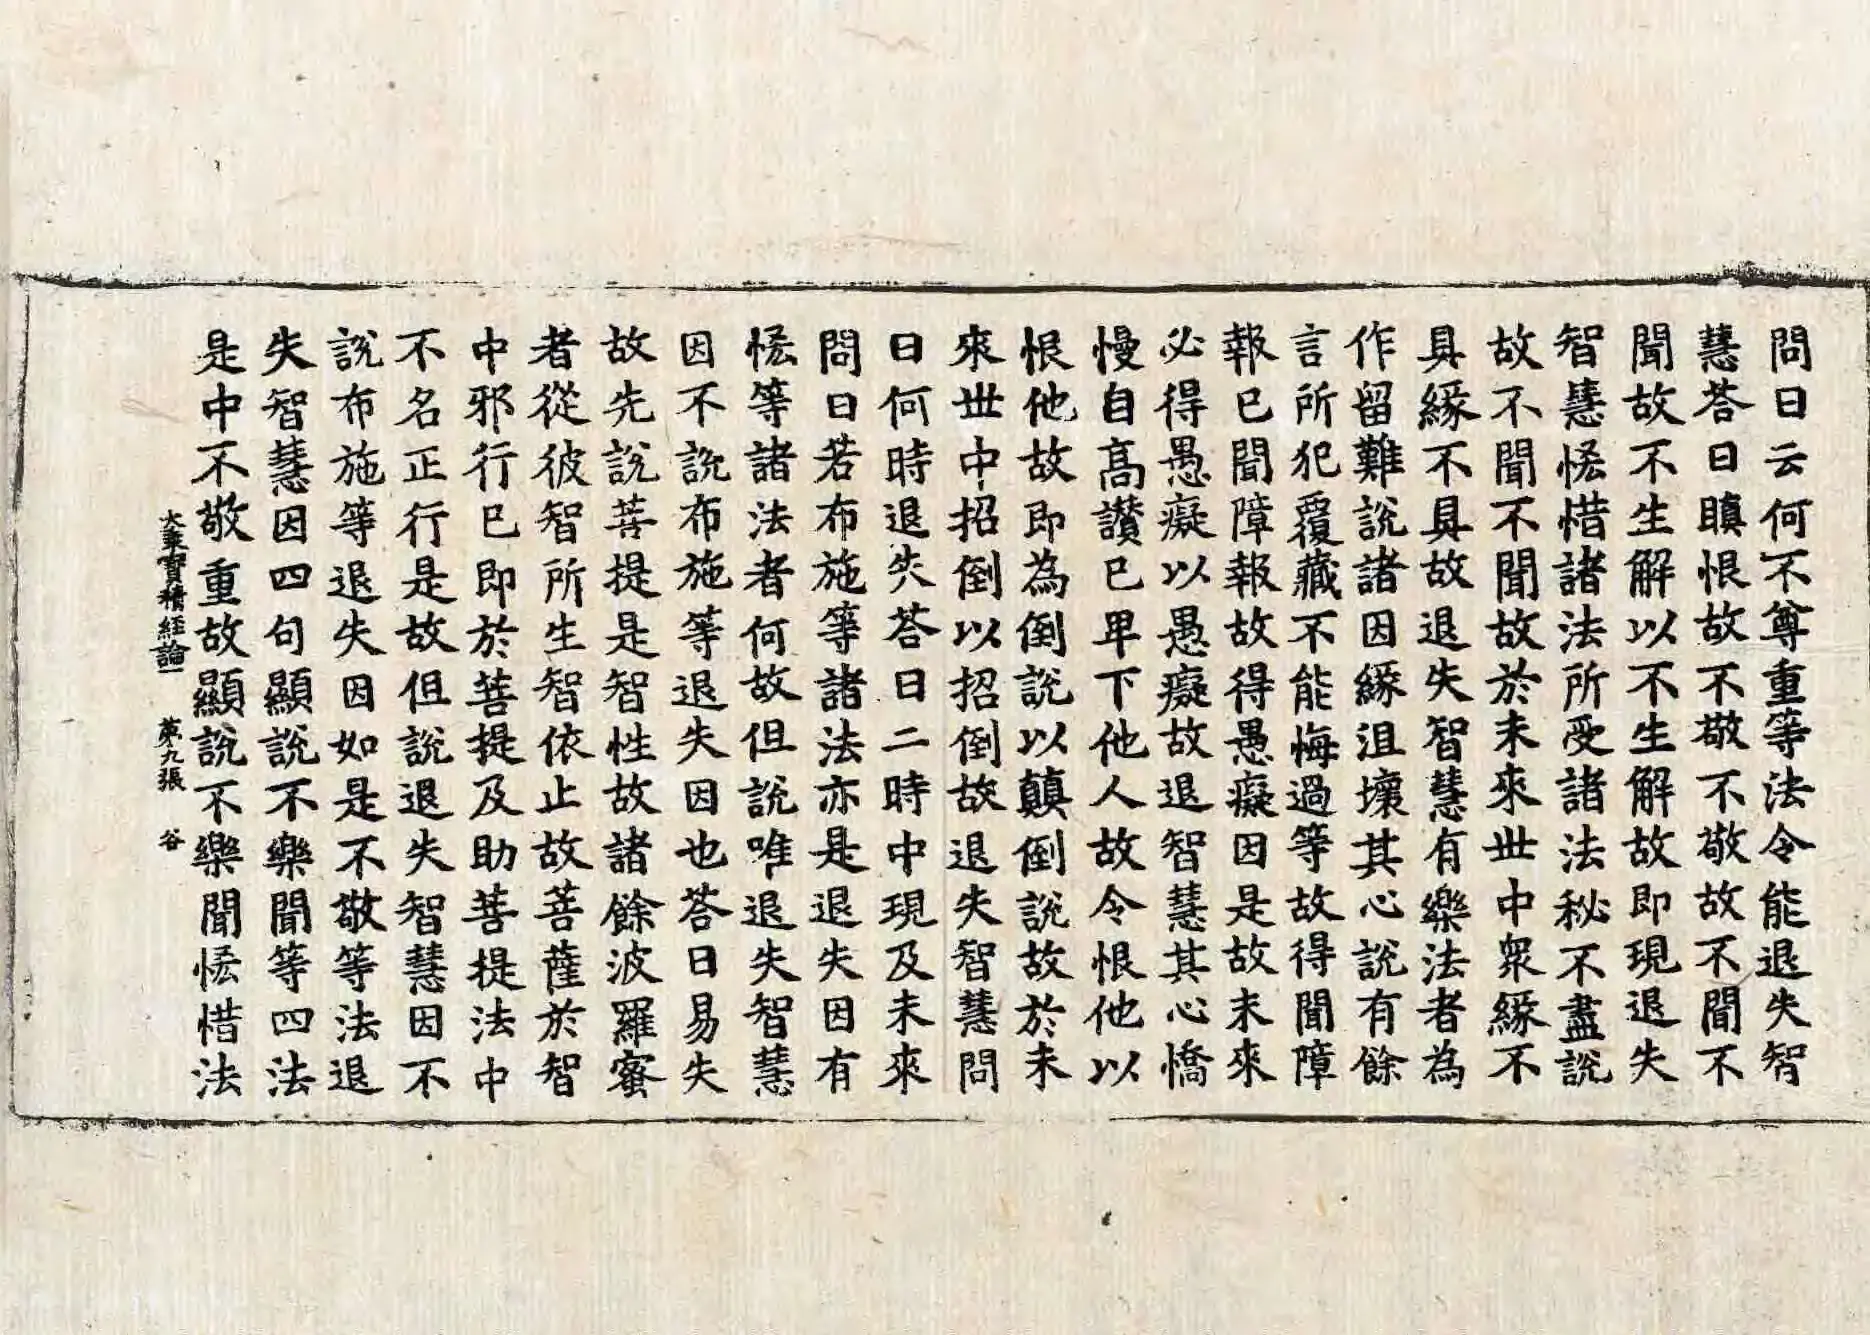 問曰云何不尊重等法令能退失智
慧荅曰瞋恨故不敬不敬故不聞不
聞故不生解以不生解故即現退失
智慧恡惜諸法所受諸法秘不盡說
故不聞不聞故於未來世中衆緣不
具緣不具故退失智慧有樂法者為
作留難說諸因緣沮壞其心說有餘
言所犯覆藏不能悔過等故得聞障
報已聞障報故得愚癡因是故未來
必得愚癡以愚癡故退智慧其心憍
慢自高讃已卑下他人故令恨他以
恨他故即為倒說以顛倒說故於未
來世中招倒以招倒故退失智慧問
曰何時退失荅曰二時中現及未來
問曰若布施等諸法亦是退失因有
恡等諸法者何故但說唯退失智慧
因不說布施等退失因也荅曰易失
故先說菩提是智性故諸餘波羅蜜
者從彼智所生智依止故菩薩於智
中邪行已即於菩提及助菩提法中
不名正行是故但說退失智慧因不
說布施等退失因如是不敬等法退
失智慧因四句顯說不樂聞等四法
是中不敬重故顯說不樂聞恡惜法
大乘寶積經論一 第九張 谷